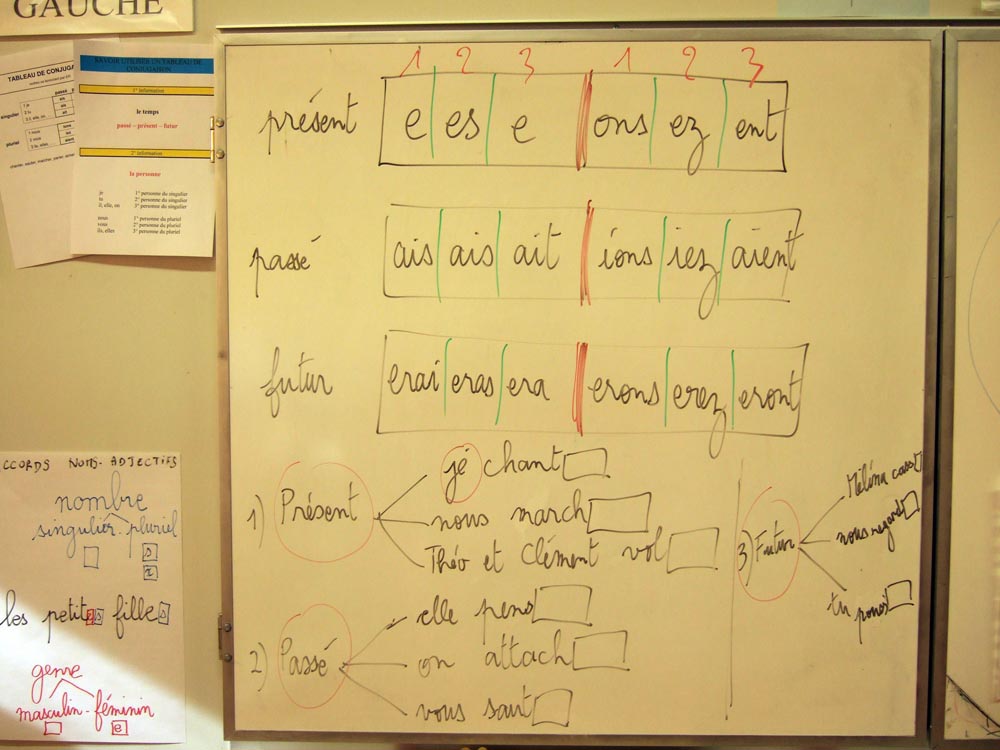 GAUCHE
TABLEAU DE CONJUGA
singulier
1 je
2 tu
3 il, elle, on
pluriel
1 nous
2 vous
3 ils, elles
SAVOIR UTILISER UN TABLEAU DE
CONJUGAISON
1° information
le temps
passé – présent – futur
2° information
la personne
je 1° personne du singulier
tu 2° personne du singulier
il, elle, on 3° personne du singulier
nous 1° personne du pluriel
vous 2° personne du pluriel
ils, elles 3° personne du pluriel
1 2 3 1 2 3
présent e es e ons ez ent
passé ais ais ait ions iez aient
futur erai eras era erons erez eront
1) Présent
je chant
nous march
Théo et Clément vol
2) Passé
elle pens
on attach
vous saut
3) Futur
Mélina cass
nous regard
tu pous
CCORDS NOMS-ADJECTIFS
nombre
singulier - pluriel
s
x
les petites filles
genre
masculin - féminin
e